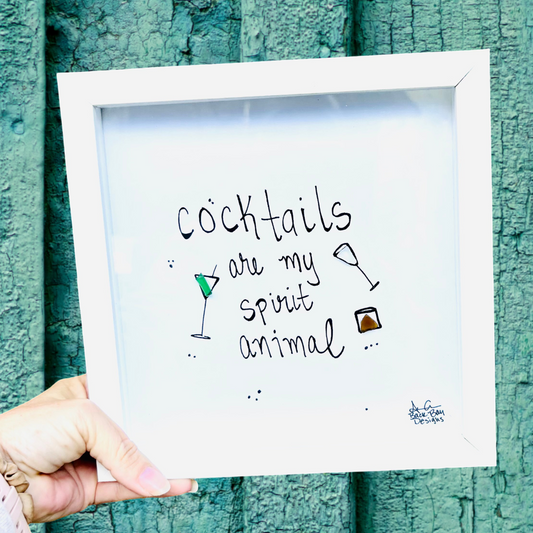 cocktails
are my
spirit
animal
Back Bay
Designs